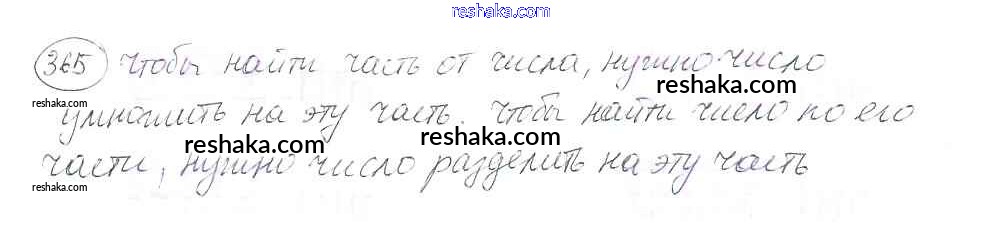 reshaka.com
365 Чтобы найти часть от числа, нужно число
reshaka.com
reshaka.com
умножить на эту часть. Чтобы найти число по его
reshaka.com
reshaka.com
части, нужно число разделить на эту часть
reshaka.com
reshaka.com